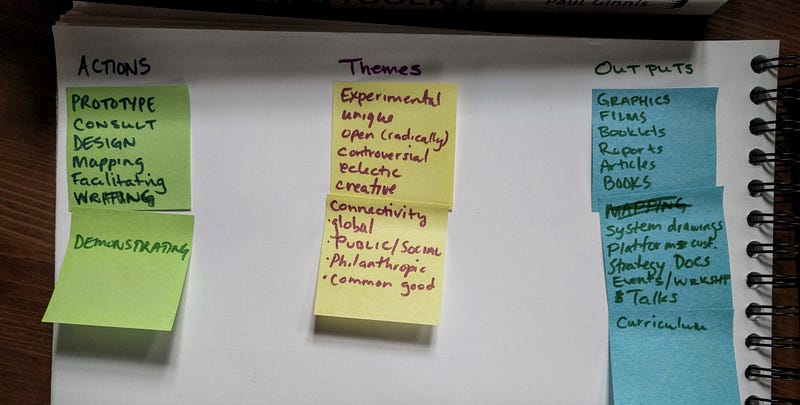 TOOLKIT
Paul Ginnis
ACTIONS
PROTOTYPE
CONSULT
DESIGN
Mapping
Facilitating
WRITING
DEMONSTRATING
Themes
Experimental
unique
open (radically)
controversial
eclectic
creative
Connectivity
·global
·PUBLIC/SOCIAL
·Philanthropic
·Common good
OUTPUTS
GRAPHICS
FILMS
Booklets
Reports
Articles
BOOKS
MAPPING
System drawings
Platforms cust.
Strategy Docs
Events/WRKSHP
& Talks
Curriculum